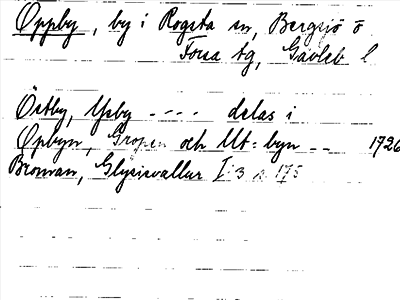 Oppby, by i Rogsta sn, Bergsjö o
Forsa tg, Gävleb l
Östby, Ysby - - - - delas i
Opbyn, Gropen och Ut=byn - - 1726
Broman, Glysisvallur I:3 s. 175